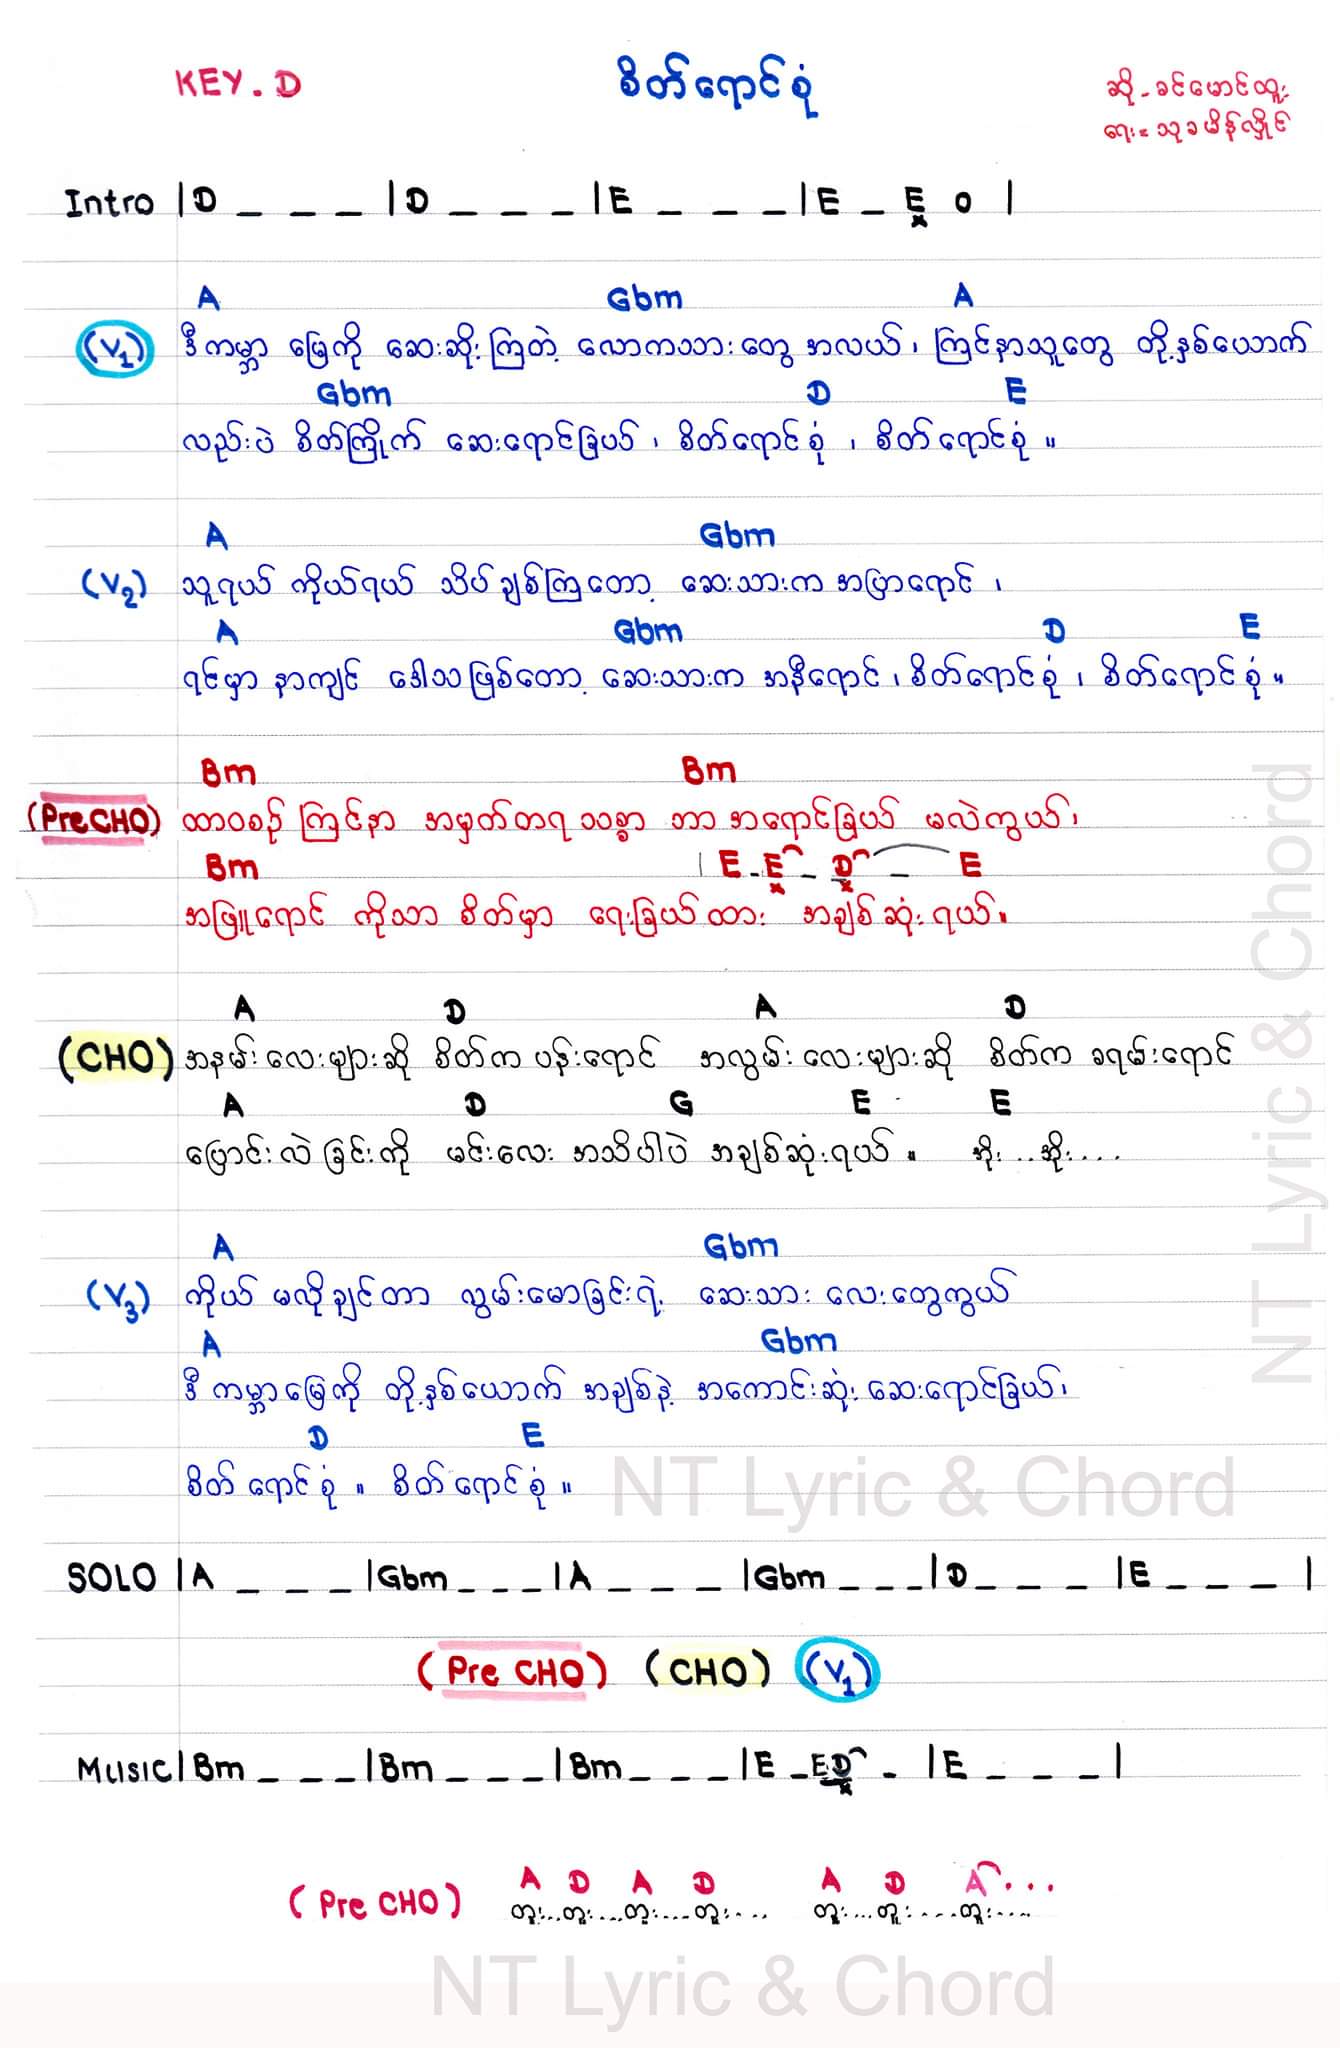 KEY. D
စိတ်ရောင်စုံ
ဆို - ခင်မောင်ထူး
ရေး = သုခမိန်လှိုင်
Intro |D _ _ _ |D _ _ _ |E _ _ _ |E _ E o |
A Gbm A
(V1) ဒီကမ္ဘာ မြေကို ဆေးဆိုးကြတဲ့ လောကသားတွေ အလယ်၊ ကြင်နာသူတွေ တို့နှစ်ယောက်
Gbm D E
လည်းပဲ စိတ်ကြိုက် ဆေးရောင်ခြယ်၊ စိတ်ရောင်စုံ ၊ စိတ်ရောင်စုံ ။
A Gbm
(V2) သူရယ် ကိုယ်ရယ် သိပ်ချစ်ကြတော့ ဆေးသားက အပြာရောင် ၊
A Gbm D E
ရင်မှာ နာကျင် ဒေါသဖြစ်တော့ ဆေးသားက အနီရောင် ၊ စိတ်ရောင်စုံ ၊ စိတ်ရောင်စုံ ။
Bm Bm
(Pre CHO) ထာဝစဉ် ကြင်နာ အမှတ်တရ သစ္စာ ဘာအရောင်ခြယ် မလဲကွယ်၊
Bm | E - E - D - E
အဖြူရောင် ကိုသာ စိတ်မှာ ရေးခြယ်ထား အချစ်ဆုံးရယ်။
A D A D
(CHO) အနမ်းလေးများဆို စိတ်က ပန်းရောင် အလွမ်းလေးများဆို စိတ်က ခရမ်းရောင်
A D G E E
ပြောင်းလဲခြင်းကို မင်းလေး အသိပါပဲ အချစ်ဆုံးရယ် ။ အိုး...အိုး....
A Gbm
(V3) ကိုယ် မလိုချင်တာ လွမ်းမောခြင်းရဲ့ ဆေးသား လေးတွေကွယ်
A Gbm
ဒီ ကမ္ဘာမြေကို တို့နှစ်ယောက် အချစ်နဲ့ အကောင်းဆုံး ဆေးရောင်ခြယ်၊
D E
စိတ်ရောင်စုံ ။ စိတ်ရောင်စုံ ။
SOLO |A _ _ _ |Gbm _ _ _ |A _ _ _ |Gbm _ _ _ |D _ _ _ |E _ _ _ |
(Pre CHO) (CHO) (V1)
Music |Bm _ _ _ |Bm _ _ _ |Bm _ _ _ |E _ E D - |E _ _ _ |
A D A D A D A...
(Pre CHO) တူး...တူး....တူး....တူး.... တူး....တူး....တူး....
NT Lyric & Chord
NT Lyric & Chord
NT Lyric & Chord